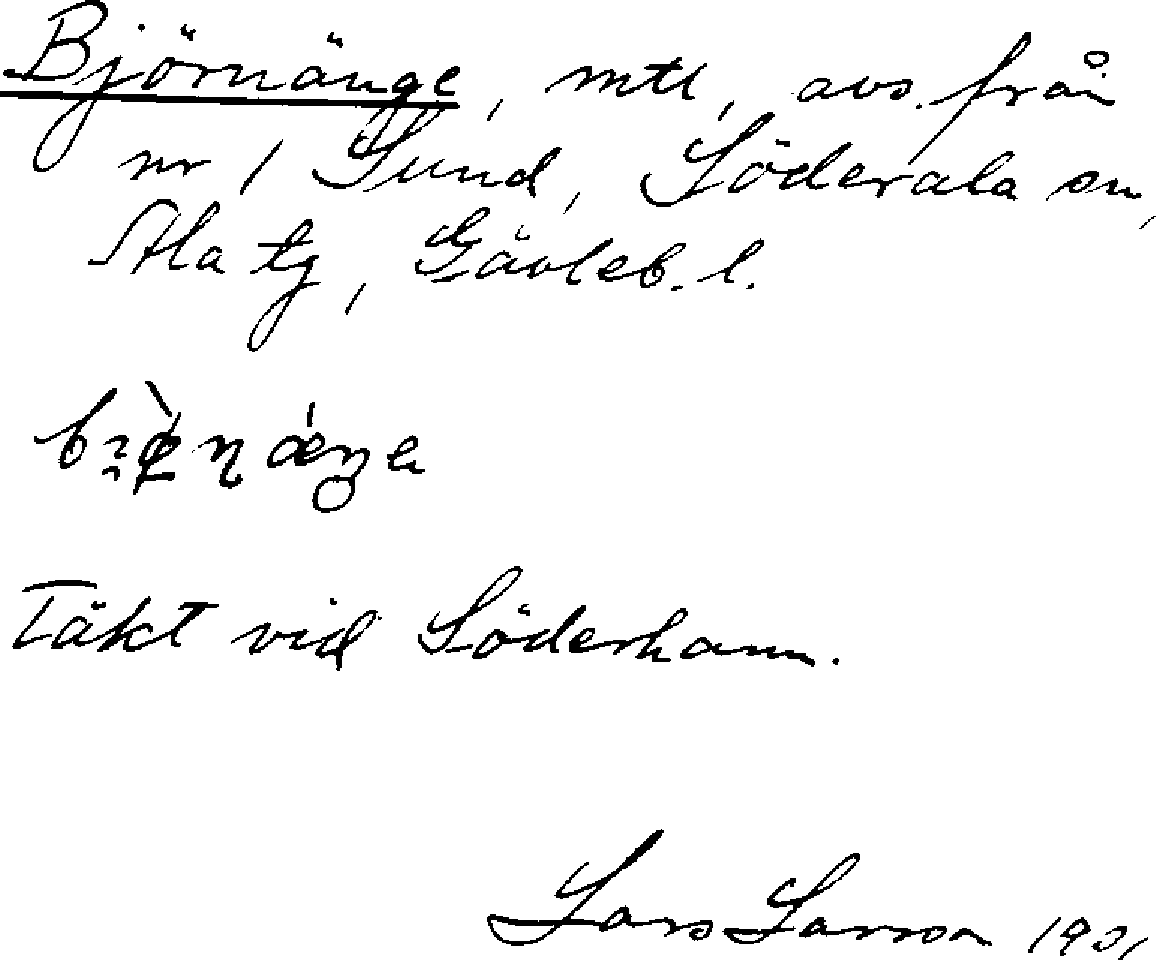 Björnänge, mtl, avs. från
nr 1 Sund, Söderala sn,
Ala tg, Gävleb. l.
Täkt vid Söderhamn.
Lars Larson 1901